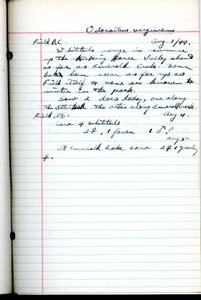 Odocoileus virginianus
Field, B.C. Aug. 1/44.
Whitetails range in summer
up the Kicking Horse Valley about
as far as Emerald Creek. Some
have been seen as far up as
Field itself & none are known to
winter in the park.
Saw 2 does today, one along
the Ottertail the other along Emerald Creek.
Field, B.C. Aug 4.
Saw 4 whitetails
2 ♀, 1 fawn 1 ♂?
Aug 5
At Emerald Lake saw 2 ♀ 1 yearly